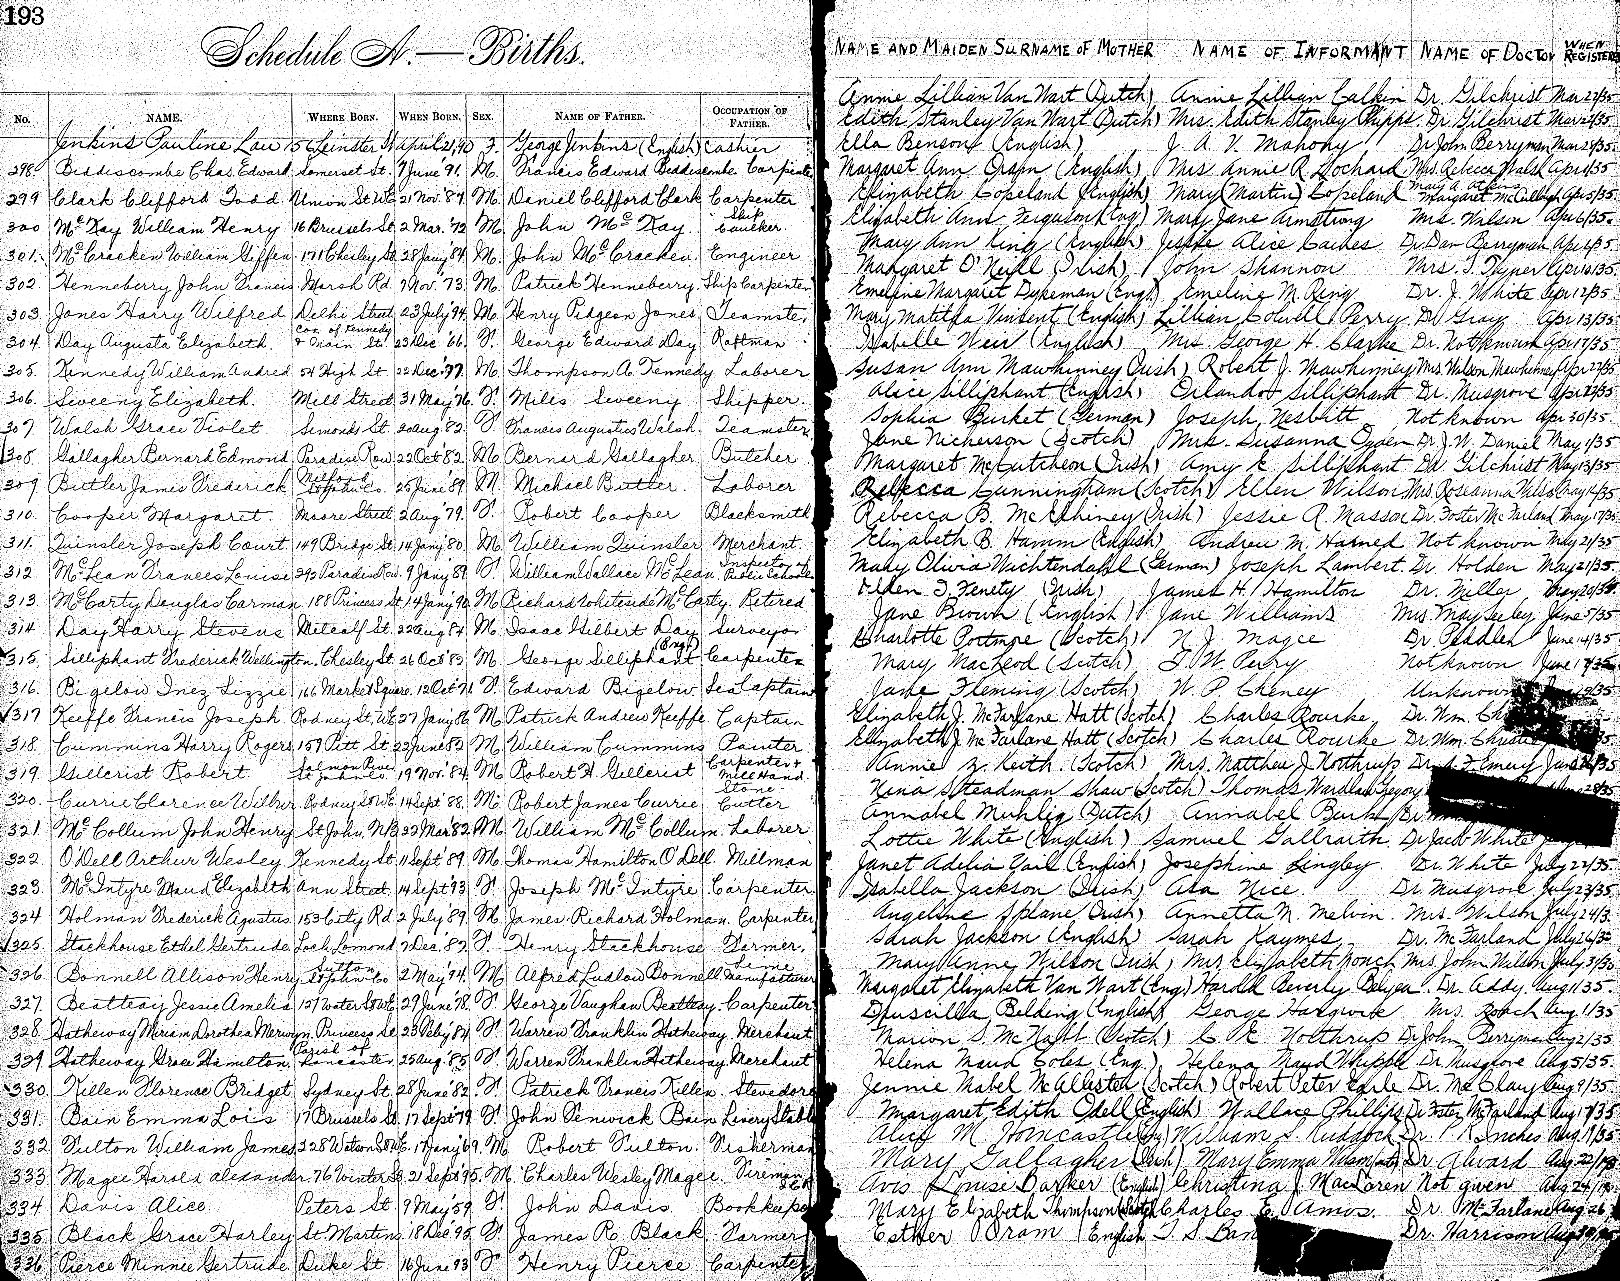 193
Schedule A.—Births.
No. NAME. WHERE BORN. WHEN BORN. SEX. NAME OF FATHER. OCCUPATION OF FATHER.
Jenkins Pauline April 21, 90 F. George Jenkins (English) Cashier
298 Biddiscombe Chas. Edward Somerset St. 7 June '91. M. Francis Edward Biddiscombe Carpenter
299 Clark Clifford Todd Union St. W.E. 21 Nov. '89. M. Daniel Clifford Clark Carpenter
300 McKay William Henry 16 Brussels St. 2 Mar. '72 M. John McKay. Ship Caulker.
301. McCracken William Giffen 171 Chesley St. 28 Jany '84 M. John McCracken Engineer
302 Henneberry John Francis Marsh Rd. 7 Nov. '73. M. Patrick Henneberry. Ship Carpenter
303. Jones Harry Wilfred Delhi Street 23 July '94. M. Henry Pidgeon Jones Teamster
304 Day Augusta Elizabeth. Cor. of Kennedy & Main St. 23 Dec '66. F. George Edward Day Raftman
305. Kennedy William Andred 54 High St. 22 Dec. '77. M. Thompson A. Kennedy Laborer
306. Sweeny Elizabeth. Mill Street 31 May '76. F. Miles Sweeny Shipper.
307 Walsh Grace Violet Simonds St. 20 Aug '82. F. Francis Augustus Walsh. Teamster
308. Gallagher Bernard Edmond Paradise Row. 22 Oct '82. M. Bernard Gallagher Butcher
309 Butler James Frederick 25 June '89. M. Michael Butler. Laborer
310. Cooper Margaret. Moore Street 2 Aug '79. F. Robert Cooper Blacksmith
311. Quinsler Joseph Court 149 Bridge St. 14 Jany '80. M. William Quinsler Merchant
312 McLean Frances Louise 242 Paradise Row. 9 Jany '89. F. William Wallace McLean Inspector of Public Schools
313. McCarty Douglas Carman. 188 Princess St. 14 Jany '90. M. Richard Whiteside McCarty. Retired
314. Day Harry Stevens Metcalf St. 22 Aug '84. M. Isaac Gilbert Day Surveyor
315. Silliphant Frederick Wellington. Chesley St. 26 Oct '83 M. George Silliphant (Engl) Carpenter
316. Bigelow Inez Lizzie 166 Market Square. 12 Oct F. Edward Bigelow Sea Captain
317 Keeffe Francis Joseph Rodney St. W.E. 27 Jany '86 M. Patrick Andrew Keeffe. Captain
318. Cummins Harry Rogers 159 Pitt St. 22 June '82. M. William Cummins Painter
319. Gillcrist Robert. Salmon River St John Co. 19 Nov. '84. M. Robert H. Gillcrist Carpenter + Mill Hand.
320. Currie Clarence Wilber Rodney St W.E. 14 Sept '88. M. Robert James Currie Stone Cutter
321. McCollum John Henry St. John, N.B. 22 Mar '82. M. William McCollum. Laborer
322. O'Dell Arthur Wesley Kennedy St. 11 Sept '89. M. Thomas Hamilton O'Dell. Millman
323. McIntyre Maud Elizabeth Ann Street. 14 Sept '93. F. Joseph McIntyre Carpenter
324 Holman Frederick Agustus 153 City Rd. 2 July '89. M. James Richard Holman. Carpenter
325. Stackhouse Ethel Gertrude Loch Lomond 7 Dec. '87. F. Henry Stackhouse Farmer.
326. Bonnell Allison Henry St John Co 2 May '94. M. Alfred Ludlow Bonnell Lime Manufacturer
327. Beatteay Jessie Amelia 157 Water St W.E. 29 June '78. F. George Vaughan Beatteay. Carpenter
328. Hatheway Miriam Dorothea Princess St. 23 Feby '84 F. Warren Franklin Hatheway. Merchant
329. Hatheway Grace Hamilton. Parish of Lancaster 25 Aug '85. F. Warren Franklin Hatheway Merchant
330. Killen Florence Bridget Sydney St. 28 June '82. F. Patrick Francis Killen. Stevedore
331. Bain Emma Lois 17 Brussels St. 17 Sept '79. F. John Fenwick Bain Livery Stable
332 Fulton William James 228 Watson St W.E. 17 Jany '69. M. Robert Fulton. Fisherman
333. Magee Harold Alexander. 76 Winter St. 21 Sept '95. M. Charles Wesley Magee. Fireman
334 Davis Alice. Peters St. 9 May '59. F. John Davis. Bookkeeper
335. Black Grace Harley St Martins. 18 Dec. '95. F. James R. Black. Farmer
336. Pierce Minnie Gertrude Duke St. 16 June '93 F. Henry Pierce Carpenter
NAME AND MAIDEN SURNAME OF MOTHER NAME OF INFORMANT NAME OF DOCTOR WHEN REGISTERED
Annie Lillian Van Wart (Dutch) Annie Lillian Calkin Dr. Gilchrist Mar 22/35
Edith Stanley Van Wart (Dutch) Mrs. Edith Stanley Phipps. Dr. Gilchrist Mar 22/35
Ella Benson (English) J. A. V. Mahony Dr John Berryman Mar 28/35
Margaret Ann Oram (English) Mrs Annie R. Lochard Mrs. Rebecca Walsh Apr 1/35
Elizabeth Copeland (English) Mary (Martin) Copeland Margaret McCullough Apr 5/35
Elizabeth Ann Ferguson (Eng) Mary Jane Armstrong Mrs. Wilson Apr 6/35
Mary Ann King (English) Jessie Alice Caines Dr. Dan Berryman Apr 6/35
Margaret O'Neill (Irish) John Shannon Mrs. T. Tyner Apr 10/35
Emeline Margaret Dykeman (Eng.) Emeline M. Ring Dr. J. White Apr 12/35
Mary Matilda Vincent (English) Lillian Colwell Perry Dr. Gray Apr 13/35
Isabelle Weir (English) Mrs George H. Clarke Dr. Not known Apr 17/35
Susan Ann Mawhinney (Irish) Robert J. Mawhinney Mrs. Wilson Mawhinney Apr 22/35
Alice Silliphant (English) Orlando Silliphant Dr. Musgrove Apr 23/35
Sophia Burket (German) Joseph Nesbitt Not known Apr 30/35
Jane Nickerson (Scotch) Mrs. Susanna Ogden Dr. J. W. Daniel May 1/35
Margaret McCutcheon (Irish) Amy E. Silliphant Dr Gilchrist May 13/35
Rebecca Cunningham (Scotch) Ellen Wilson Mrs. Roseanna Wilson May 14/35
Rebecca B. McElhiney (Irish) Jessie R. Masson Dr. Foster McFarland May 17/35
Elizabeth B. Hamm (English) Andrew M. Harned Not known May 21/35
Mary Olivia Wichtendahl (German) Joseph Lambert. Dr. Holden May 21/35.
Ellen T. Fenety (Irish) James H. Hamilton Dr. Miller
Jane Brown (English) Jane Williams Mrs. May Seeley June 5/35
Charlotte Postmore (Scotch) N. J. Magee Dr Peddlen June 14/35
Mary MacLeod (Scotch) F. W. Perry Not known June 17/35
Jane Fleming (Scotch) W. P. Cheney Unknown
Elizabeth J. McFarlane Hatt (Scotch) Charles Rourke Dr. Wm. Ch
Elizabeth J. McFarlane Hatt (Scotch) Charles Rourke Dr. Wm. Christie
Annie Keith. (Scotch) Mrs. Matthew J. Northrup Emery
Nina Steadman Shaw (Scotch) Thomas Wardlaw Gregory
Annabel Muhlig (Dutch) Annabel Burk
Lottie White (English) Samuel Galbraith Dr Jacob White
Janet Adelia Vail (English) Josephine Lingley Dr. White July 22/35
Isabella Jackson (Irish) Asa Nice. Dr. Musgrove July 23/35
Angeline Splane (Irish) Annetta M. Melvin Mrs. Wilson July 24/3
Sarah Jackson (English) Sarah Kaymes Dr. McFarland July 26/35
Mary Anne Wilson (Irish) Mrs. Elizabeth Roach Mrs. John Wilson July 31/35
Margaret Elizabeth Van Wart (Eng) Harold Beverly Belyea Dr. Addy. Aug 1/35.
Druscilla Belding (English) George Hargrove Mrs. Roach Aug. 1/35
Marion S. McNatt (Scotch) C. E. Northrup Dr John Berryman Aug 2/35
Helena Maud Coles (Eng.) Helena Maud Whipple Dr. Musgrove Aug 5/35.
Jennie Mabel McAllister (Scotch) Robert Peter Earle Dr. McClary Aug 9/35
Margaret Edith Odell (English) Wallace Phillips Dr Foster McFarland Aug 17/35
Alice M. Horncastle (Eng) William S. Ruddock Dr. P. R. Inches Aug. 19/35
Mary Gallagher (Irish) Mary Emma Wilson Dr Alward Aug 22/
Avis Louise Barker (English) Christina J. MacLaren Not given Aug 24/
Mary Elizabeth Thompson (Scotch) Charles E. Amos. Dr McFarlane Aug 26
Esther Oram (English) T. S. Ban Dr. Harrison